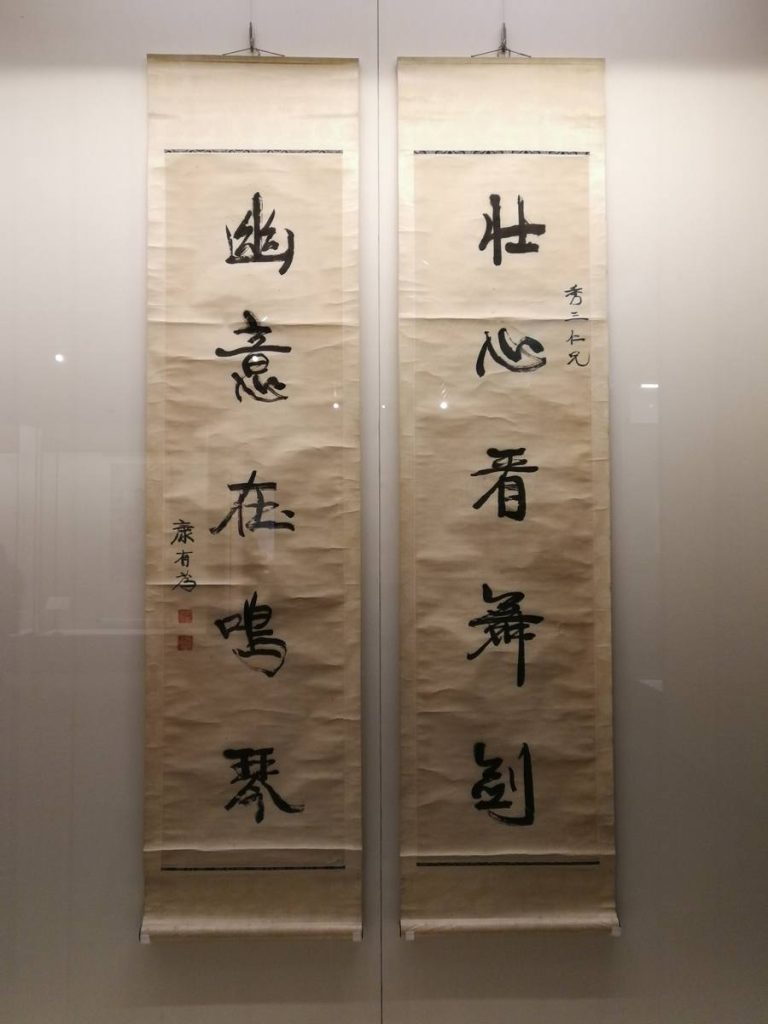 壮心看舞剑
秀三仁兄
幽意在鸣琴
康有为